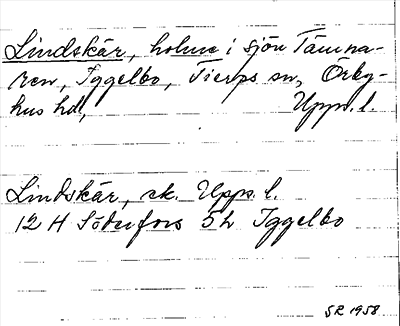 Lindskär, holme i sjön Tämna-
ren, Iggelbo, Tierps sn, Örby-
hus hd, Upps. l.
Lindskär, ek. Upps. l.
12 H Söderfors 5 h Iggelbo
SR 1958